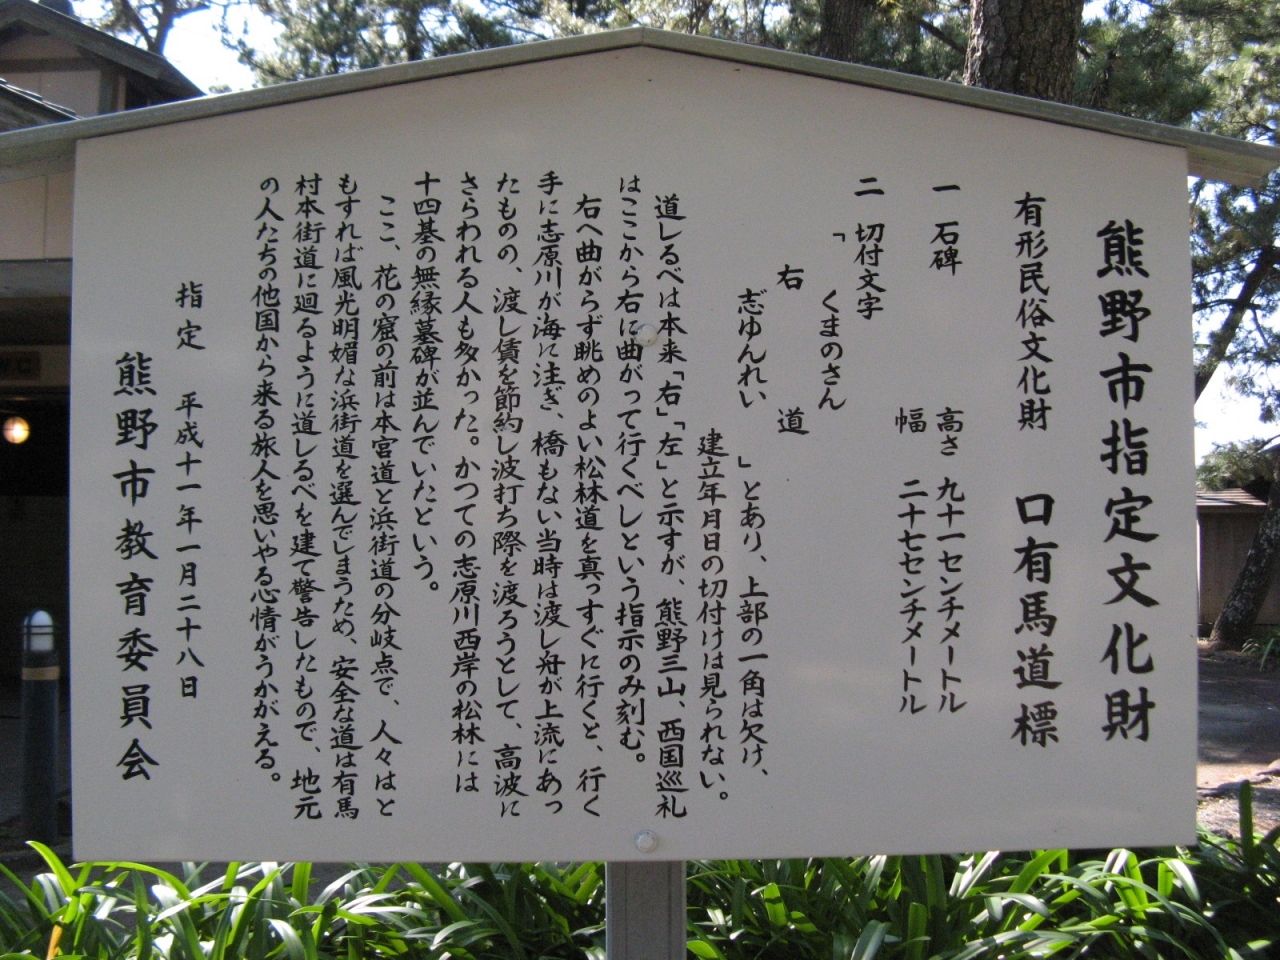 熊野市指定文化財
有形民俗文化財 口有馬道標
一 石碑 高さ 九十一センチメートル
幅 二十七センチメートル
二 切付文字
「 くまのさん
右 道
志ゆんれい
」とあり、上部の一角は欠け、
建立年月日の切付けは見られない。
道しるべは本来「右」「左」と示すが、熊野三山、西国巡礼
はここから右に曲がって行くべしという指示のみ刻む。
右へ曲がらず眺めのよい松林道を真っすぐに行くと、行く
手に志原川が海に注ぎ、橋もない当時は渡し舟が上流にあっ
たものの、渡し賃を節約し波打ち際を渡ろうとして、高波に
さらわれる人も多かった。かつての志原川西岸の松林には
十四基の無縁墓碑が並んでいたという。
ここ、花の窟の前は本宮道と浜街道の分岐点で、人々はと
もすれば風光明媚な浜街道を選んでしまうため、安全な道は有馬
村本街道に廻るように道しるべを建て警告したもので、地元
の人たちの他国から来る旅人を思いやる心情がうかがえる。
指定 平成十一年一月二十八日
熊野市教育委員会